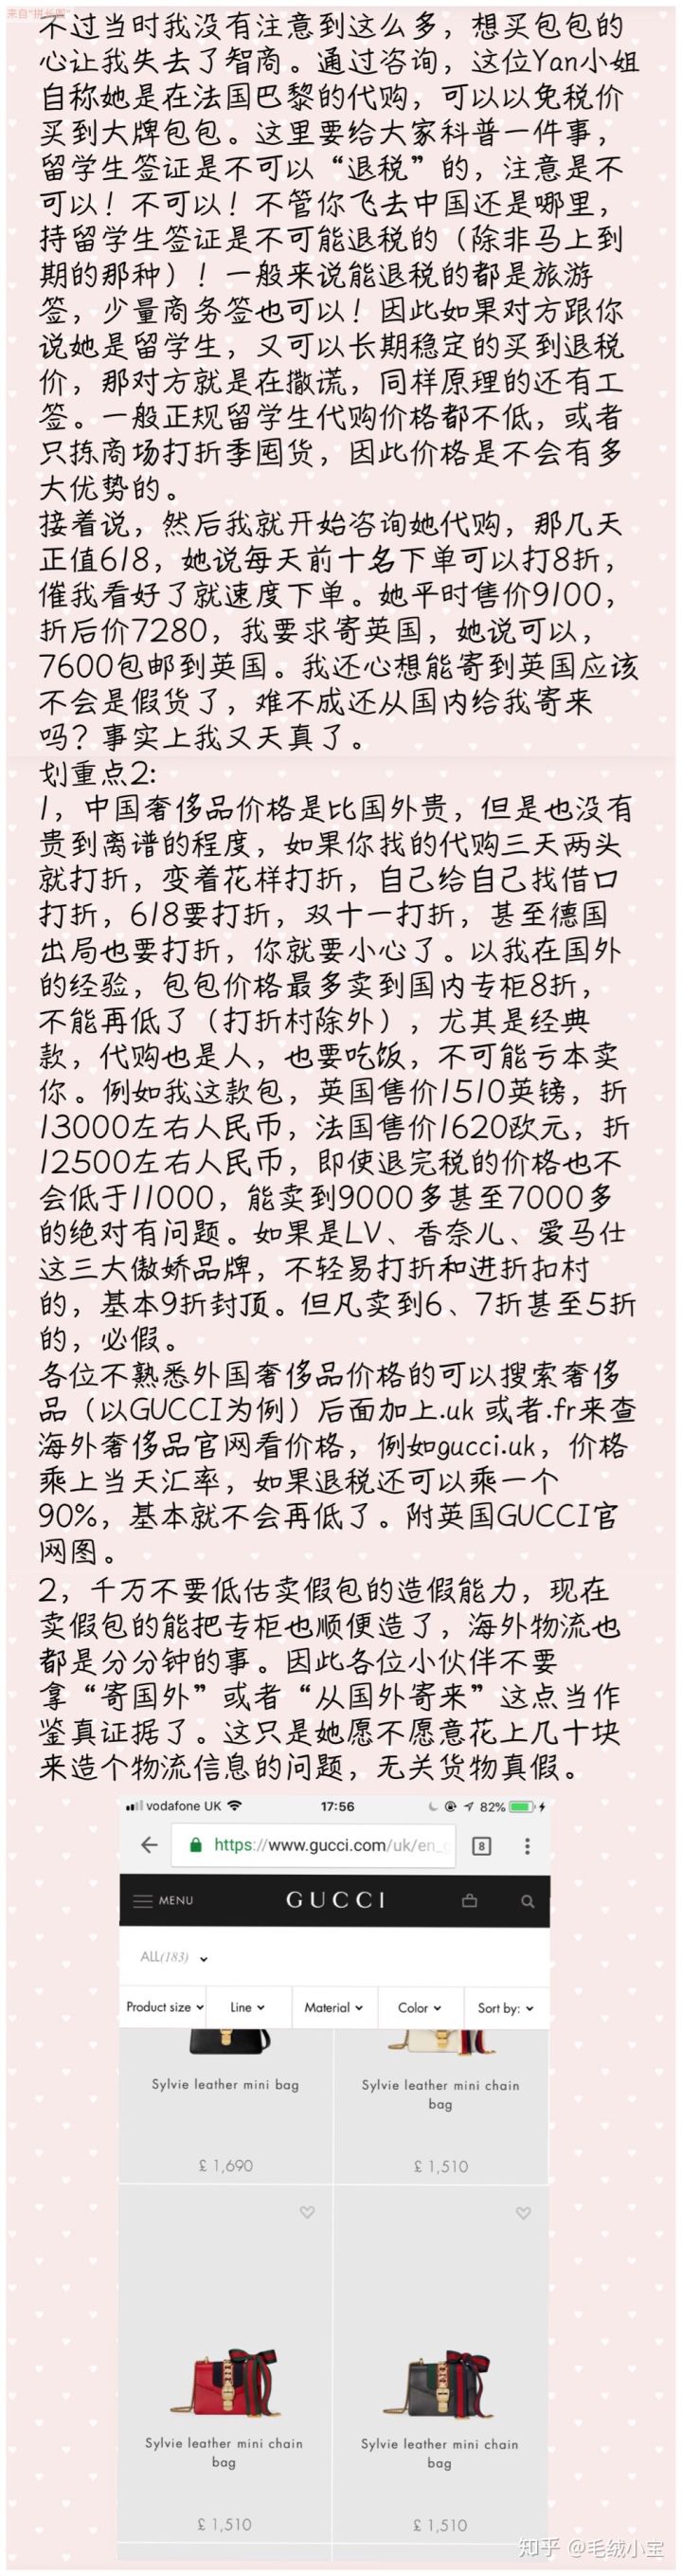 来自"拼长图"
不过当时我没有注意到这么多，想买包包的
心让我失去了智商。通过咨询，这位Yan小姐
自称她是在法国巴黎的代购，可以以免税价
买到大牌包包。这里要给大家科普一件事，
留学生签证是不可以“退税”的，注意是不
可以！不可以！不管你飞去中国还是哪里，
持留学生签证是不可能退税的（除非马上到
期的那种）！一般来说能退税的都是旅游
签，少量商务签也可以！因此如果对方跟你
说她是留学生，又可以长期稳定的买到退税
价，那对方就是在撒谎，同样原理的还有工
签。一般正规留学生代购价格都不低，或者
只拣商场打折季囤货，因此价格是不会有多
大优势的。
接着说，然后我就开始咨询她代购，那几天
正值618，她说每天前十名下单可以打8折，
催我看好了就速度下单。她平时售价9100，
折后价7280，我要求寄英国，她说可以，
7600包邮到英国。我还心想能寄到英国应该
不会是假货了，难不成还从国内给我寄来
吗？事实上我又天真了。
划重点2:
1，中国奢侈品价格是比国外贵，但是也没有
贵到离谱的程度，如果你找的代购三天两头
就打折，变着花样打折，自己给自己找借口
打折，618要打折，双十一打折，甚至德国
出局也要打折，你就要小心了。以我在国外
的经验，包包价格最多卖到国内专柜8折，
不能再低了（打折村除外），尤其是经典
款，代购也是人，也要吃饭，不可能亏本卖
你。例如我这款包，英国售价1510英镑，折
13000左右人民币，法国售价1620欧元，折
12500左右人民币，即使退完税的价格也不
会低于11000，能卖到9000多甚至7000多
的绝对有问题。如果是LV、香奈儿、爱马仕
这三大傲娇品牌，不轻易打折和进折扣村
的，基本9折封顶。但凡卖到6、7折甚至5折
的，必假。
各位不熟悉外国奢侈品价格的可以搜索奢侈
品（以GUCCI为例）后面加上.uk 或者.fr来查
海外奢侈品官网看价格，例如gucci.uk，价格
乘上当天汇率，如果退税还可以乘一个
90%，基本就不会再低了。附英国GUCCI官
网图。
2，千万不要低估卖假包的造假能力，现在
卖假包的能把专柜也顺便造了，海外物流也
都是分分钟的事。因此各位小伙伴不要
拿“寄国外”或者“从国外寄来”这点当作
鉴真证据了。这只是她愿不愿意花上几十块
来造个物流信息的问题，无关货物真假。
vodafone UK 17:56 82%
https://www.gucci.com/uk/en_g 8
MENU GUCCI
ALL(183)
Product size Line Material Color Sort by:
Sylvie leather mini bag Sylvie leather mini chain
bag
£ 1,690 £ 1,510
Sylvie leather mini chain Sylvie leather mini chain
bag bag
£ 1,510 £ 1,510
知乎 @毛绒小宝